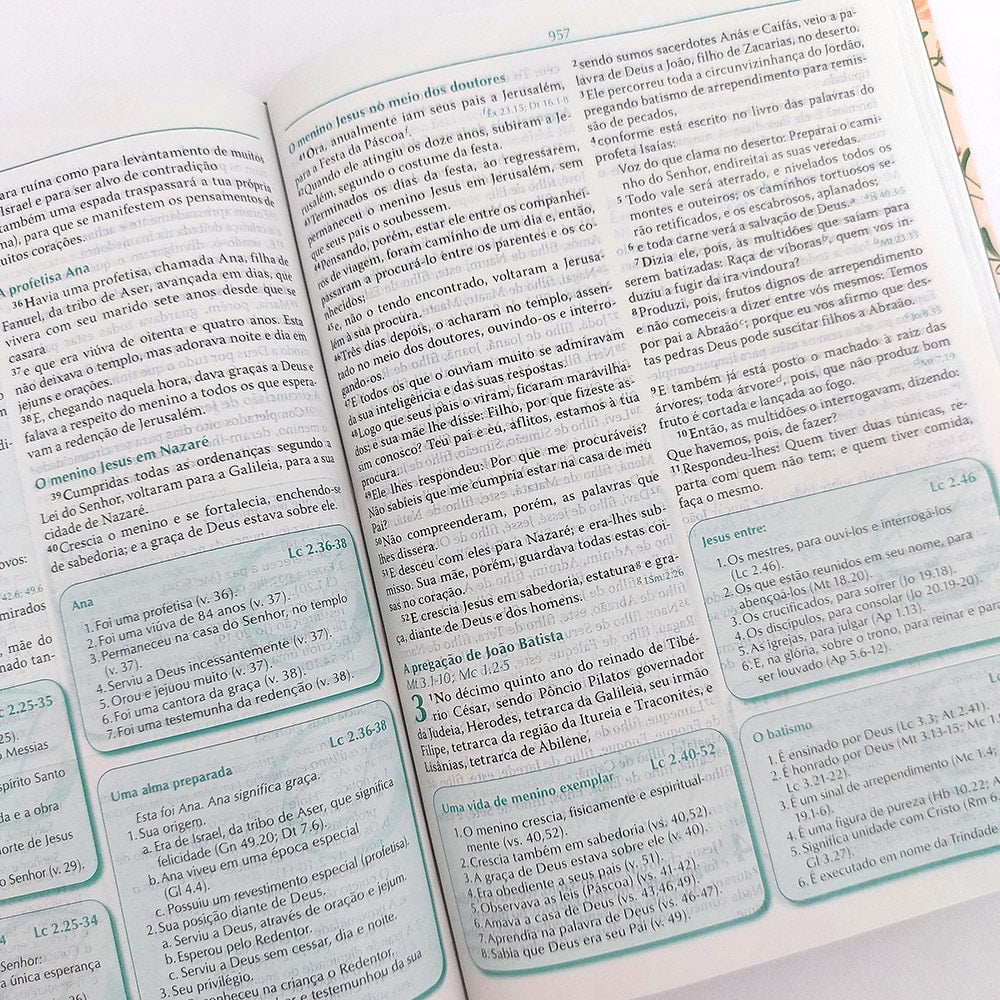 957
ara ruína como para levantamento de muitos
Israel e para ser alvo de contradição
também uma espada traspassará a tua própria
ma), para que se manifestem os pensamentos de
uitos corações.
A profetisa Ana
36Havia uma profetisa, chamada Ana, filha de
Fanuel, da tribo de Aser, avançada em dias, que
vivera com seu marido sete anos desde que se
casara
37e que era viúva de oitenta e quatro anos. Esta
não deixava o templo, mas adorava noite e dia em
jejuns e orações.
38E, chegando naquela hora, dava graças a Deus e
falava a respeito do menino a todos os que espera-
vam a redenção de Jerusalém.
O menino Jesus em Nazaré
39Cumpridas todas as ordenanças segundo a
Lei do Senhor, voltaram para a Galileia, para a sua
cidade de Nazaré.
40Crescia o menino e se fortalecia, enchendo-se
de sabedoria; e a graça de Deus estava sobre ele.
Lc 2.36-38
Ana
1. Foi uma profetisa (v. 36).
2. Foi uma viúva de 84 anos (v. 37).
3. Permaneceu na casa do Senhor, no templo
(v. 37).
4. Serviu a Deus incessantemente (v. 37).
5. Orou e jejuou muito (v. 37).
6. Foi uma cantora da graça (v. 38).
7. Foi uma testemunha da redenção (v. 38).
Lc 2.36-38
Uma alma preparada
Esta foi Ana. Ana significa graça.
1. Sua origem.
a. Era de Israel, da tribo de Aser, que significa
felicidade (Gn 49.20; Dt 7.6).
b. Ana viveu em uma época especial
(Gl 4.4).
c. Possuiu um revestimento especial (profetisa).
2. Sua posição diante de Deus.
a. Serviu a Deus, através de oração e jejum.
b. Esperou pelo Redentor.
c. Serviu a Deus sem cessar, dia e noite.
3. Seu privilégio.
conheceu na criança o Redentor,
e testemunhou da sua
ovos:
42.6; 49.6
mirados
mãe do
to tan-
c 2.25-35
25).
o Messias
spírito Santo
da e a obra
orte de Jesus
o Senhor (v. 29).
4 Lc 2.25-34
Senhor:
a única esperança
O menino Jesus no meio dos doutores
Êx 23.15; Dt 16.1-8
41Ora, anualmente iam seus pais a Jerusalém,
para a Festa da Páscoa.
42Quando ele atingiu os doze anos, subiram a Je-
rusalém, segundo o costume da festa.
43Terminados os dias da festa, ao regressarem,
permaneceu o menino Jesus em Jerusalém, sem
que seus pais o soubessem.
44Pensando, porém, estar ele entre os companhei-
ros de viagem, foram caminho de um dia e, então,
passaram a procurá-lo entre os parentes e os co-
nhecidos;
45e, não o tendo encontrado, voltaram a Jerusa-
lém à sua procura.
46Três dias depois, o acharam no templo, assen-
tado no meio dos doutores, ouvindo-os e interro-
gando-os.
47E todos os que o ouviam muito se admiravam
da sua inteligência e das suas respostas.
48Logo que seus pais o viram, ficaram maravilha-
dos; e sua mãe lhe disse: Filho, por que fizeste as-
sim conosco? Teu pai e eu, aflitos, estamos à tua
procura.
49Ele lhes respondeu: Por que me procuráveis?
Não sabíeis que me cumpria estar na casa de meu
Pai?
50Não compreenderam, porém, as palavras que
lhes dissera.
51E desceu com eles para Nazaré; e era-lhes sub-
misso. Sua mãe, porém, guardava todas estas coi-
sas no coração.
52E crescia Jesus em sabedoria, estatura e gra-
ça, diante de Deus e dos homens. 1Sm 2.26
A pregação de João Batista
Mt 3.1-10; Mc 1.2-5
3 1No décimo quinto ano do reinado de Tibé-
rio César, sendo Pôncio Pilatos governador
da Judeia, Herodes, tetrarca da Galileia, seu irmão
Filipe, tetrarca da região da Itureia e Traconites, e
Lisânias, tetrarca de Abilene,
Lc 2.40-52
Uma vida de menino exemplar
1. O menino crescia, fisicamente e espiritual-
mente (vs. 40,52).
2. Crescia também em sabedoria (vs. 40,52).
3. A graça de Deus estava sobre ele (v. 40).
4. Era obediente a seus pais (v. 51).
5. Observava as leis (Páscoa) (vs. 41-42).
6. Amava a casa de Deus (vs. 43,46,49).
7. Aprendia na palavra de Deus (vs. 46-47).
8. Sabia que Deus era seu Pai (v. 49).
2sendo sumos sacerdotes Anás e Caifás, veio a pa-
lavra de Deus a João, filho de Zacarias, no deserto.
3Ele percorreu toda a circunvizinhança do Jordão,
pregando batismo de arrependimento para remis-
são de pecados,
4conforme está escrito no livro das palavras do
profeta Isaías:
Voz do que clama no deserto: Preparai o cami-
nho do Senhor, endireitai as suas veredas.
5Todo vale será aterrado, e nivelados todos os
montes e outeiros; os caminhos tortuosos se-
rão retificados, e os escabrosos, aplanados;
6e toda carne verá a salvação de Deus. Is 40.3-5
7Dizia ele, pois, às multidões que saíam para
serem batizadas: Raça de víboras, quem vos in-
duziu a fugir da ira vindoura? Mt 23.33
8Produzi, pois, frutos dignos de arrependimento
e não comeceis a dizer entre vós mesmos: Temos
por pai a Abraão; porque eu vos afirmo que des-
tas pedras Deus pode suscitar filhos a Abraão.
Jo 8.33
9E também já está posto o machado à raiz das
árvores; toda árvore, pois, que não produz bom
fruto é cortada e lançada ao fogo. Mt 7.19
10Então, as multidões o interrogavam, dizendo:
Que havemos, pois, de fazer?
11Respondeu-lhes: Quem tiver duas túnicas, re-
parta com quem não tem; e quem tiver comida,
faça o mesmo.
Lc 2.46
Jesus entre:
1. Os mestres, para ouvi-los e interrogá-los
(Lc 2.46).
2. Os que estão reunidos em seu nome, para
abençoá-los (Mt 18.20).
3. Os crucificados, para sofrer (Jo 19.18).
4. Os discípulos, para consolar (Jo 20.19-20).
5. As igrejas, para julgar (Ap 1.13).
6. E, na glória, sobre o trono, para reinar e para
ser louvado (Ap 5.6-12).
O batismo
1. É ensinado por Deus (Lc 3.3; At 2.41).
2. É honrado por Deus (Mt 3.13-15; Mc
Lc 3.21-22).
3. É um sinal de arrependimento (Mc 1.4;
19.1-6).
4. É uma figura de pureza (Hb 10.22;
5. Significa unidade com Cristo (Rm 6
Gl 3.27).
6. É executado em nome da Trindade